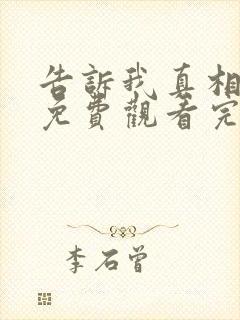 告訴我真相
免費觀看完
李石曾